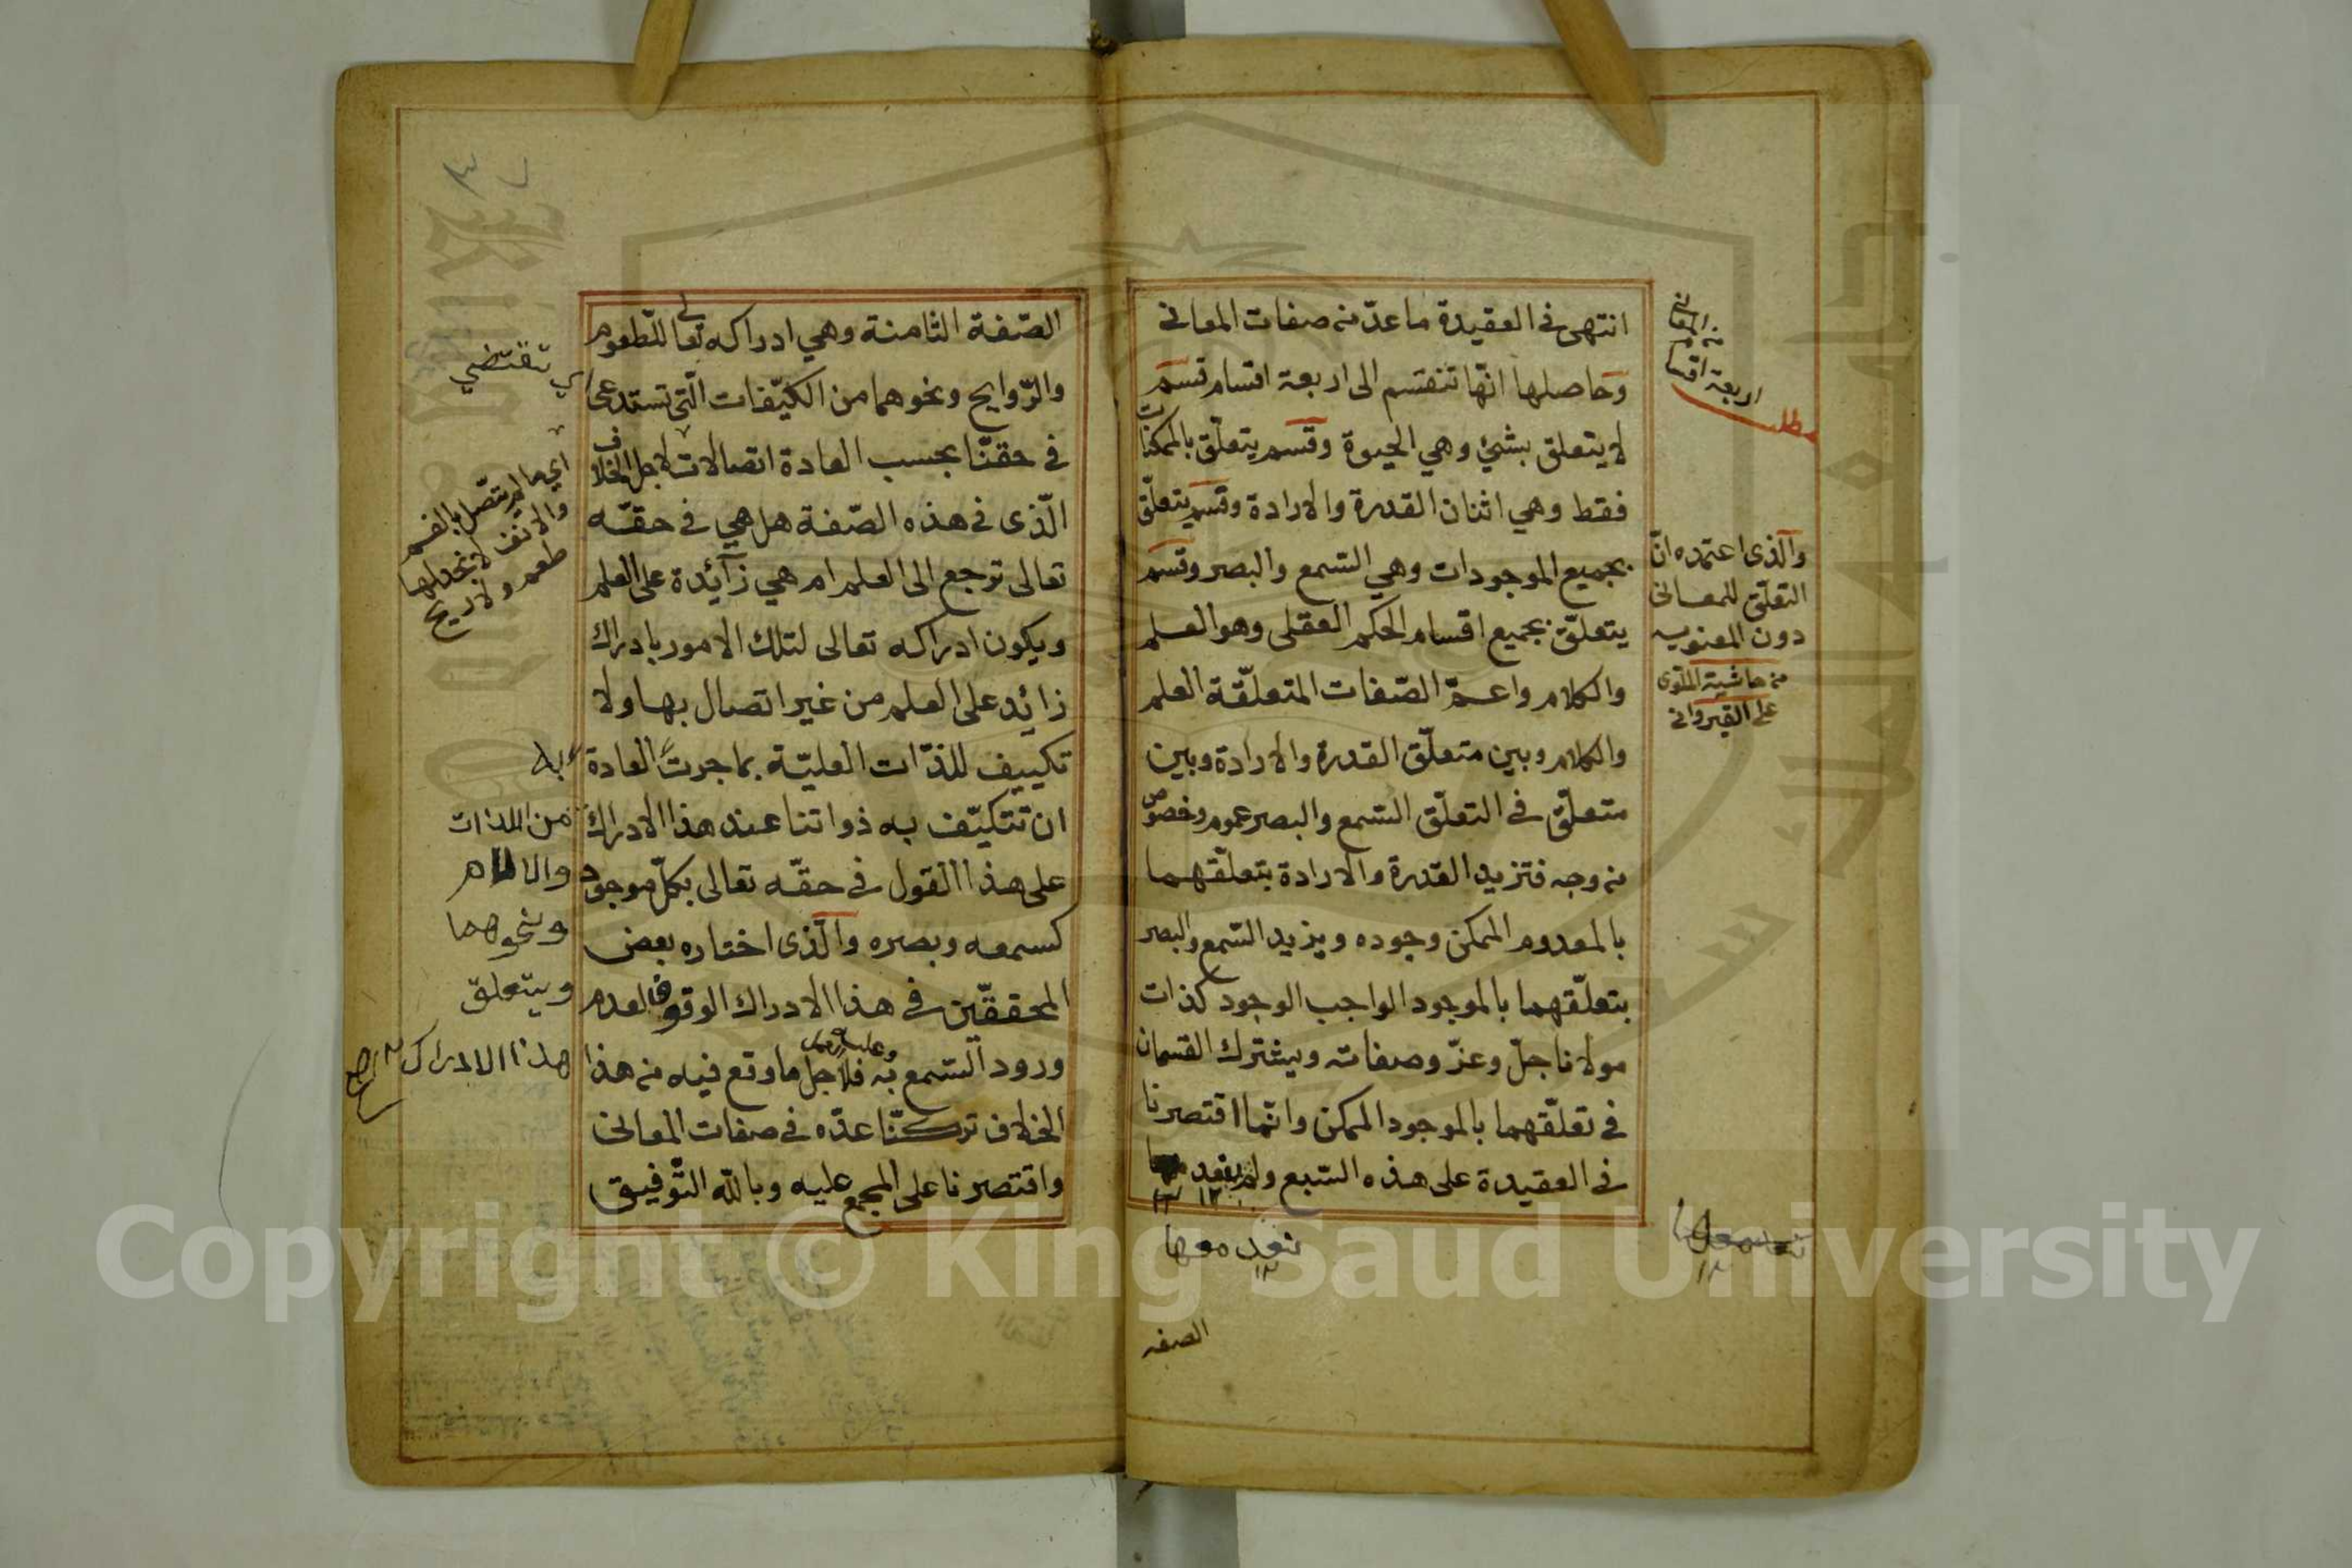 انتهى في العقيدة ما عدّ من صفات المعاني
وحاصلها انّها تنقسم الى اربعة اقسام قسم
لا يتعلق بشئ وهي الحيوة وقسم يتعلّق بالممكنات
فقط وهي اثنان القدرة والارادة وقسم يتعلّق
بجميع الموجودات وهي السّمع والبصر وقسم
يتعلّق بجميع اقسام الحكم العقلى وهو العلم
والكلام واعمّ الصّفات المتعلّقة العلم
والكلام وبين متعلّق القدرة والارادة وبين
متعلّق في التعلّق السّمع والبصر عموم وخصوص
من وجه فتزيد القدرة والارادة بتعلّقهما
بالمعدوم الممكن وجوده ويزيد السّمع والبصر
بتعلّقهما بالموجود الواجب الوجود كذات
مولانا جلّ وعزّ وصفاته ويشترك القسمان
في تعلّقهما بالموجود الممكن وانّما اقتصرنا
في العقيدة على هذه السّبع ولم يعد
نعد معها
١٢
الصفه
مطلب
اربعة اقسا
والّذى اعتمده انّ
التعلّق للمعانى
دون المعنويه
من حاشية الملّوى
على القيروانى
الصّفة الثامنة وهي ادراكه تعالى للطعوم
والرّوايح ونحوهما من الكيّفات الّتى تستدعى
في حقنّا بحسب العادة اتصالات لاجل الخلاف
الّذى في هذه الصّفة هل هي في حقّه
تعالى ترجع الى العلم ام هي زآئدة على العلم
ويكون ادراكه تعالى لتلك الامور بادراك
زائد على العلم من غير اتصال بها ولا
تكييف للذّات العليّة بما جرت العادة
ان تتكيّف به ذواتنا عند هذا الادراك
على هذا القول في حقّه تعالى بكلّ موجود
كسمعه وبصره والّذى اختاره بعض
المحققّين في هذا الادراك الوقوف لعدم
ورود السّمع به فلاجل ما وقع فيه من هذا
الخلاف تركنّا عدّه في صفات المعانى
واقتصرنا على المجمع عليه وبالله التّوفيق
اي تقتضي
اي ما لم يتصل بالفم
والانف لا نجد لها
طعم ولا ريح
من اللذات
والالام
ونحوهما
ويتعلق
هذا الادراك صح